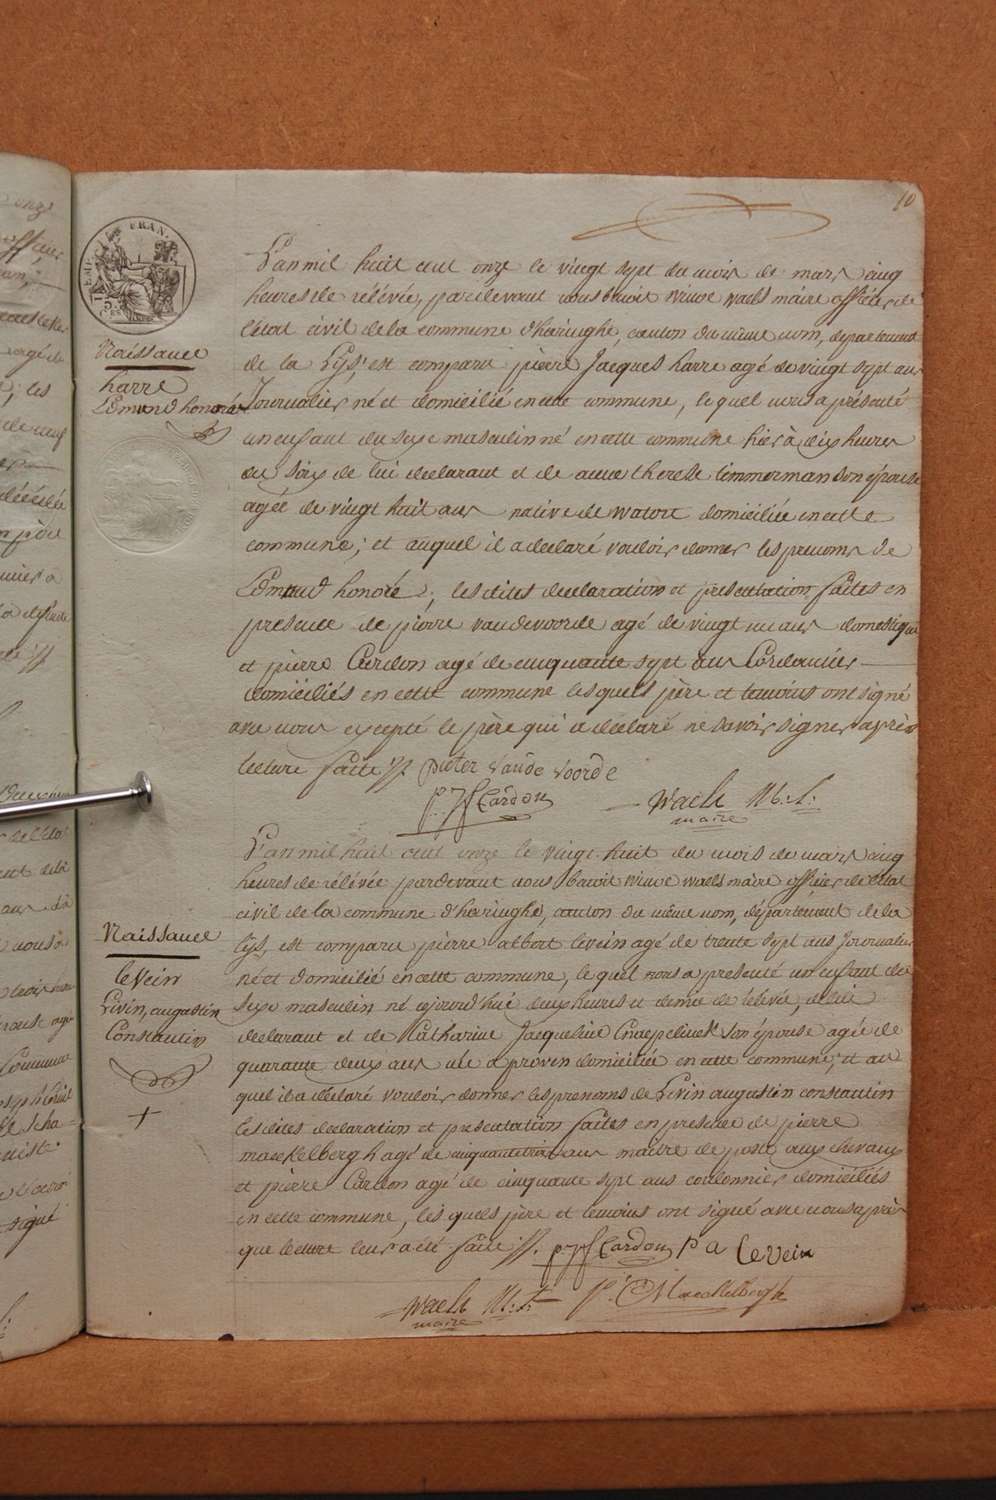 10
Naissance
harre
Edmond honoré
L'an mil huit cent onze le vingt sept du mois de mars cinq
heures de rélévée, pardevant nous benoit winoc waels maire officier de
l'état civil de la commune d'haringhe, canton du même nom, département
de la Lys, est comparu pierre Jacques harre agé de vingt sept ans
Journalier né et domicilié en cette commune, lequel nous a présenté
un enfant du sexe masculin né en cette commune hier à dix heures
du soir de lui declarant et de anne therese timmerman son épouse
agée de vingt huit ans native de watou domiciliée en cette
commune; et auquel il a declaré vouloir donner les prenoms de
Edmond honoré; les dites declaration et presentation faites en
presence de pierre vandevoorde agé de vingt ans domestique
et pierre Cardon agé de cinquante sept ans Cordonnier
domiciliés en cette commune les quels père et temoins ont signé
avec nous excepté le père qui a declaré ne savoir signer après
lecture faite //. pieter vande voorde
p. J f Cardon waels M: L:
maire
Naissance
leVein
Livin, augustin
Constantin
L'an mil huit cent onze le vingt huit du mois de mars cinq
heures de rélévée pardevant nous benoit winoc waels maire officier de l'état
civil de la commune d'haringhe, canton du même nom, département de la
lys, est comparu pierre albert levein agé de trente sept ans Journalier
né et domicilié en cette commune, lequel nous a presenté un enfant de
sexe masculin né ajourd'hui deux heures et demie de rélevée, de lui
declarant et de Catharine Jacqueline son épouse agée de
quarante deux ans née a proven domiciliée en cette commune; et au
quel il a déclaré vouloir donner les prenoms de Livin augustin constantin
les dites declaration et presentation faites en presence de pierre
maeckelbergh agé de cinquante trois ans maitre de poste aux chevaux
et pierre Cardon agé de cinquante sept ans cordonnier domiciliés
en cette commune, les quels père et temoins ont signé avec nous après
que lecture leur a été faite //. p. J f Cardon P a Levein
waels M: L: p. Maeckelbergh
maire